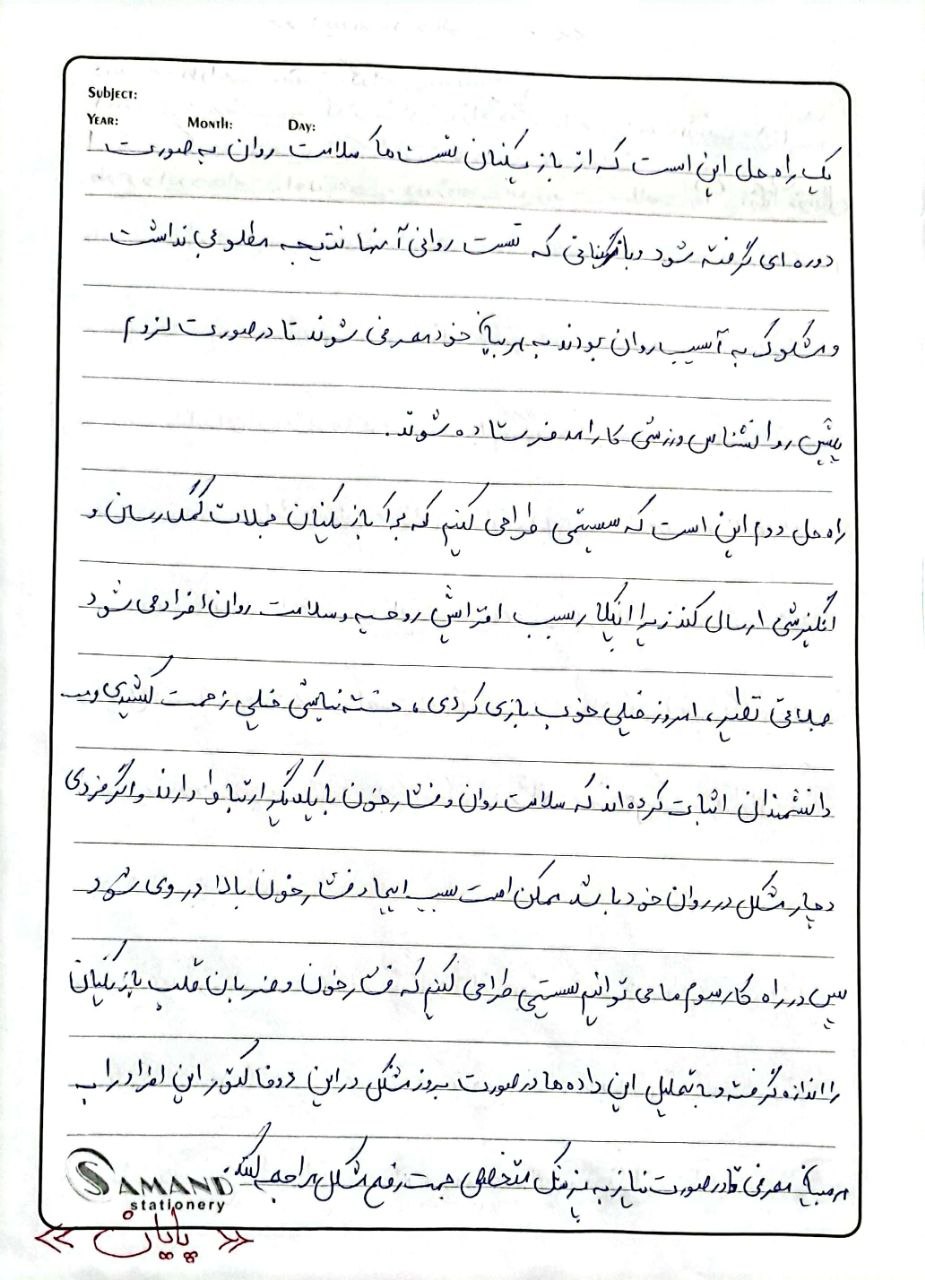 Subject:
Year: Month: Day:
یک راه حل این است که از بازیکنان تست ها سلامت روان به صورت
دوره ای گرفته شود و بازیکنانی که تست روانی آنها نتیجه مطلوبی نداشت
و مشکوک به آسیب روان بودند به مربیان خود معرفی شوند تا در صورت لزوم
پیش روانشناس ورزشی کارامد فرستاده شوند.
راه حل دوم این است که سیستمی طراحی کنیم که برا بازیکنان جملات کمک رسان و
انگیزشی ارسال کند زیرا اینکار سبب افزایش روحیه و سلامت روان افراد می شود
جملاتی نظیر، امروز خیلی خوب بازی کردی، خسته نباشی خیلی زحمت کشیدی و...
دانشمندان اثبات کرده اند که سلامت روان و فشار خون با یکدیگر ارتباط دارند و اگر فردی
دچار مشکل در روان خود باشد ممکن است سبب ایجاد فشار خون بالا در وی شود
پس در راه کار سوم ما می توانیم سیستمی طراحی کنیم که فشار خون و ضربان قلب بازیکنان
را اندازه گرفته و با تحلیل این داده ها در صورت بروز مشکل در این دو فاکتور این افراد را به
مربیان معرفی تا در صورت نیاز به پزشک متخصص جهت رفع مشکل مراجعه کنند.
SAMAND
stationery
«پایان»